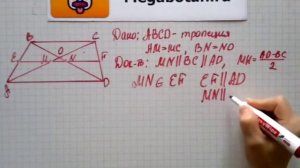 Megabotan.ru
Дано: ABCD - трапеция
AM=MC, BN=ND
Док-ть: MN∥BC∥AD, MN = AD-BC/2
MN∈EF EF∥AD
MN∥
B
C
O
E
M
N
F
D